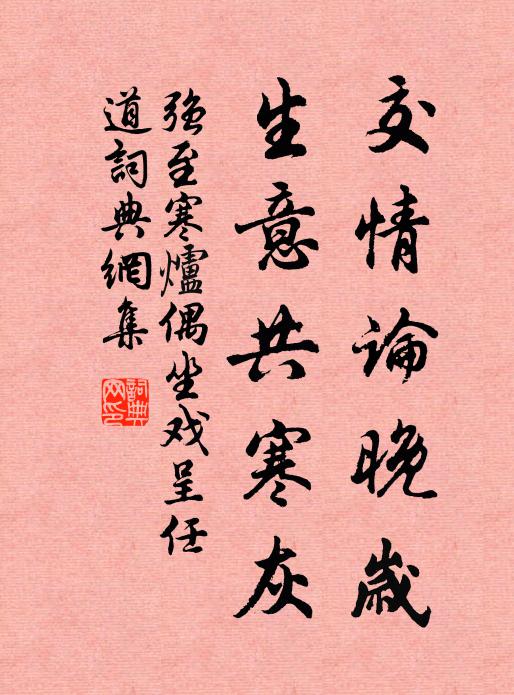 交情论晚歲
生意共寒灰
强至寒爐偶坐戏呈任
道詞典網集
詞典网印